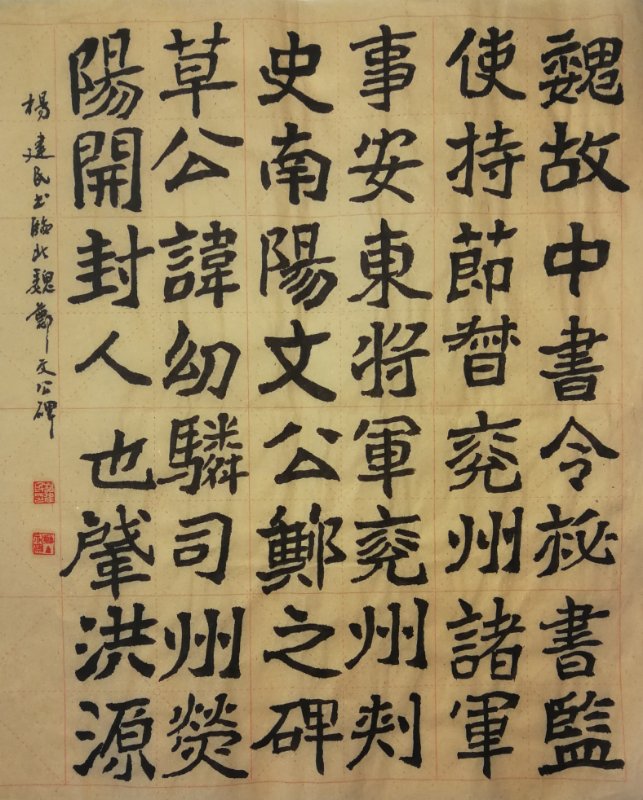 魏故中書令祕書監
使持節督兖州諸軍
事安東将軍兖州刾
史南陽文公鄭之碑
草公諱幼驎司州熒
陽開封人也肈洪源
楊建民书臨北魏鄭文公碑